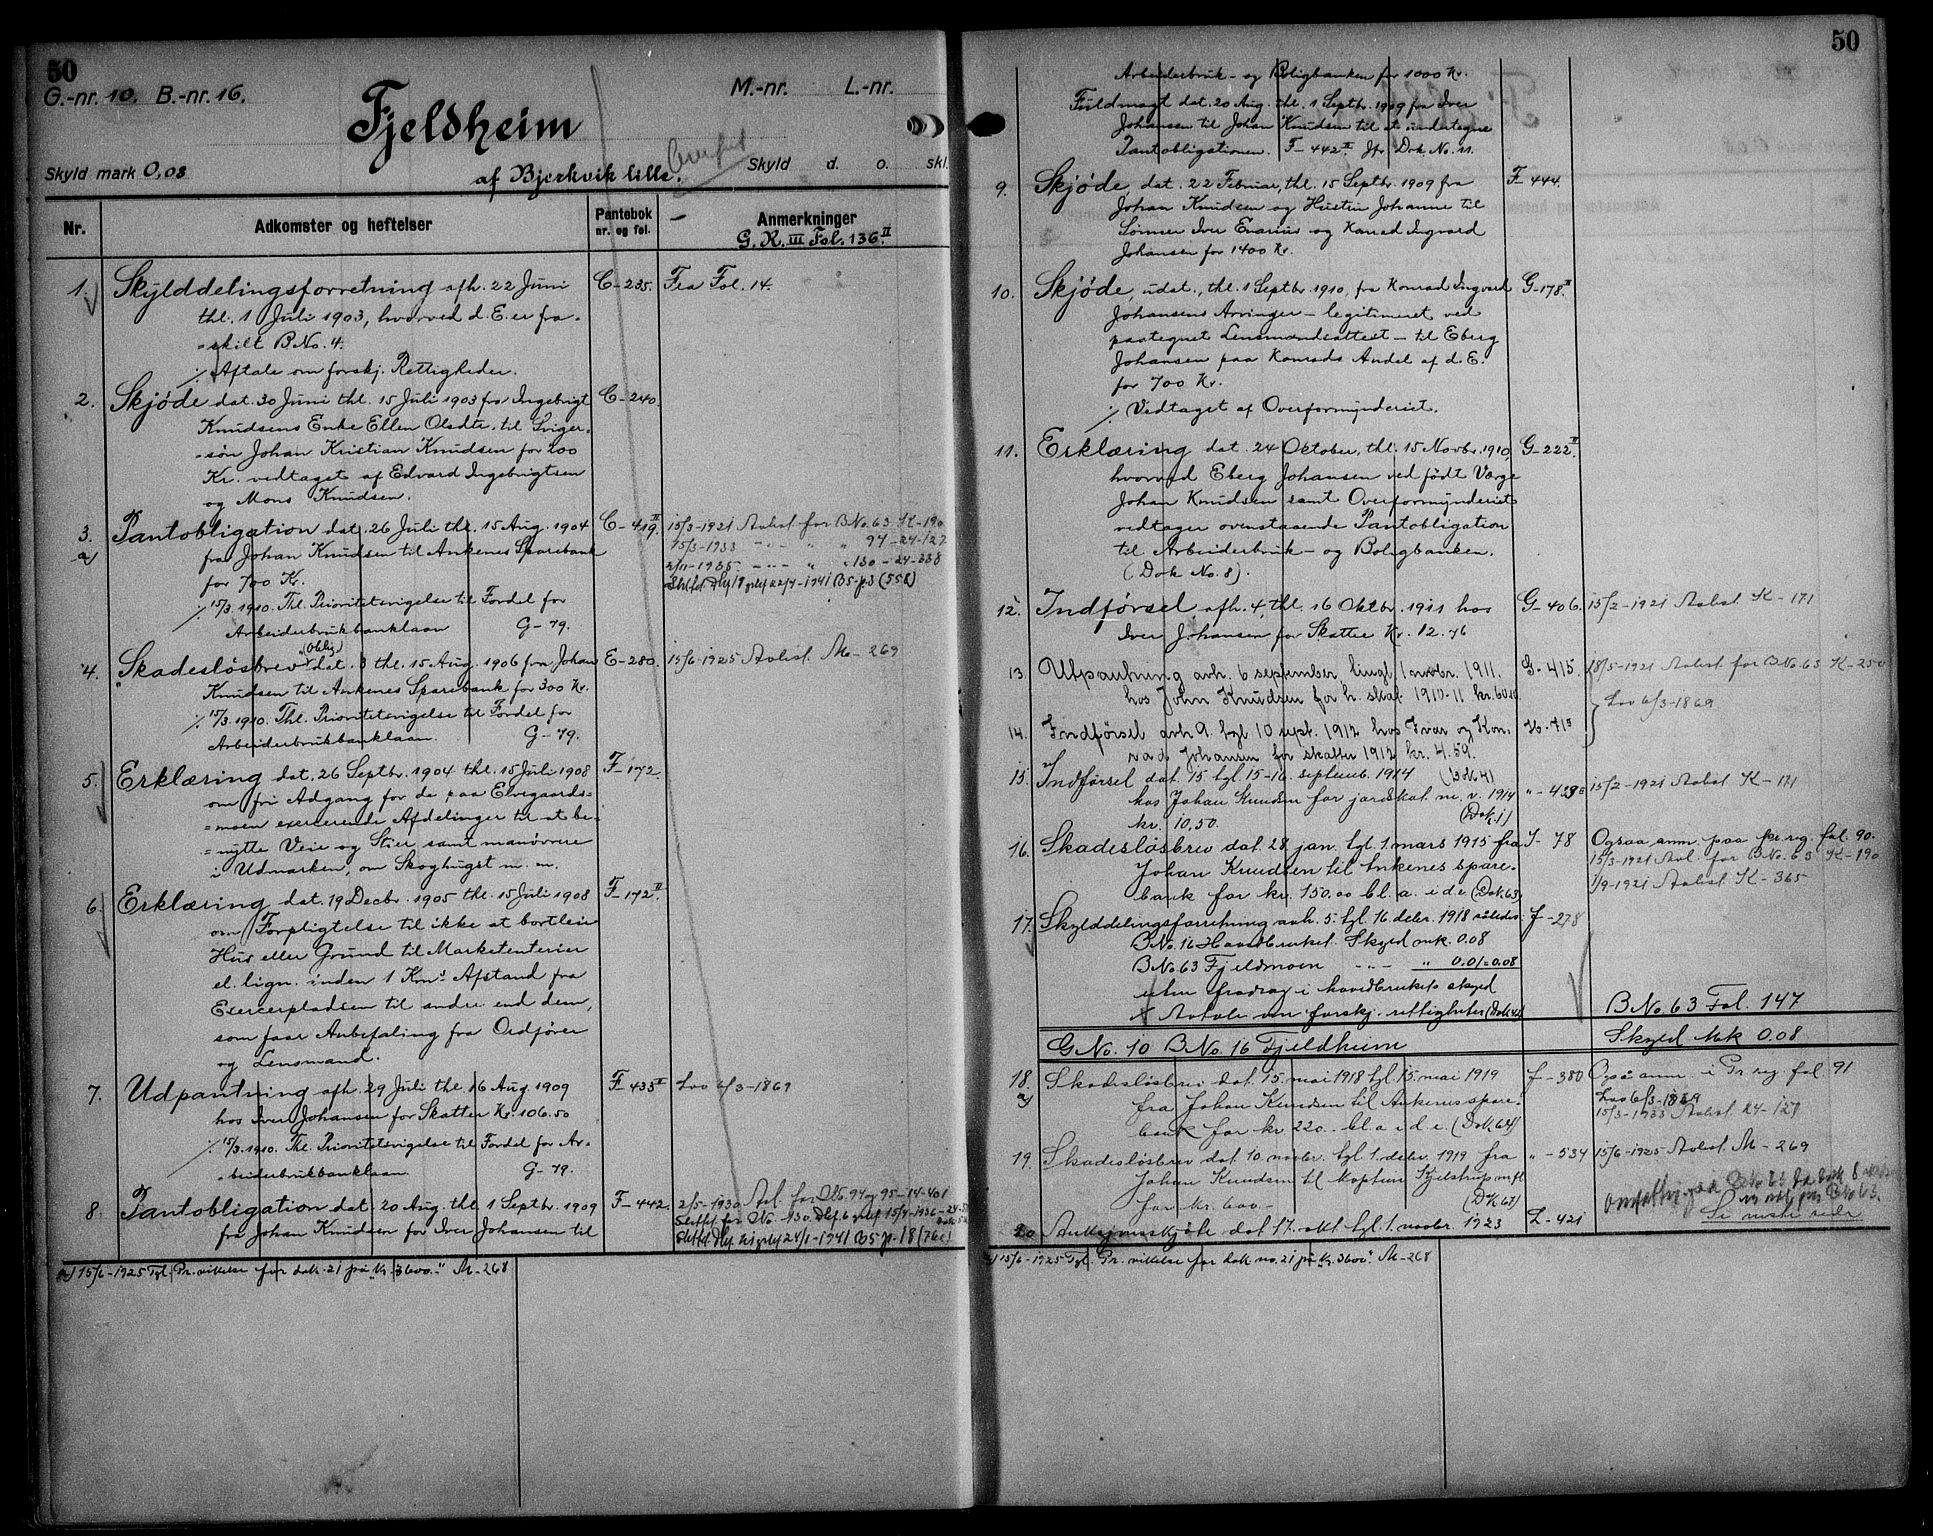 50
G.-nr. 10. B.-nr. 16.
M.-nr. L.-nr.
Fjeldheim
Skyld mark 0,08
af Bjerkvik lille.
Skyld d. o. skl.
Nr.
Adkomster og heftelser
Pantebok
nr. og fol.
Anmerkninger
G. R. III Fol. 136 II.
1. Skylddelingsforretning afh. 22 Juni C-235. Fra Fol. 14.
thl. 1 Juli 1903, hvorved d. E. er fra-
=skilt B.No. 4.
./. Aftale om forskj. Rettigheder.
2. Skjøde dat. 30 Juni thl. 15 Juli 1903 fra Ingebrigt C-240.
Knudsens Enke Ellen Olsdtr. til Sviger-
=søn Johan Kristian Knudsen for 200
Kr. vedtaget af Edvard Ingebrigtsen
og Mons Knudsen.
3. Pantobligation dat. 26 Juli thl. 15 Aug. 1904 C-419 II. 15/3-1921 Avlest for B.No. 63 K-190
a) fra Johan Knudsen til Ankenes Sparebank 15/3-1933 - - - " " 97-24-127
for 700 Kr. 2/11-1935 - - - " " 130-24-338
./. 15/3. 1910. Thl. Prioritetsvigelse til Fordel for
Arbeiderbrukbanklaan G-79.
4. Skadesløsbrev (Oblig) dat. 3 thl. 15 Aug. 1906 fra Johan E-280. 15/6-1925 Avlest. M-269
Knudsen til Ankenes Sparebank for 300 Kr.
./. 15/3. 1910. Thl. Prioritetsvigelse til Fordel for
Arbeiderbrukbanklaan. G-79.
5. Erklæring dat. 26 Septbr. 1904 thl. 15 Juli 1908 F-172.
om fri Adgang for de paa Elvegaards=
=moen exercerende Afdelinger til at be-
=nytte Veie og Stier samt manøvrere
i Udmarken, om Skoghugst m. m.
6. Erklæring dat. 19 Decbr. 1905 thl. 15 Juli 1908 F-172 II.
om Forpligtelse til ikke at bortleie
Hus eller Grund til Marketenterier
el. lign. inden 1 Km's Afstand fra
Exercerpladsen til andre end dem,
som faar Anbefaling fra Ordfører
og Lensmand.
7. Udpantning afh. 29 Juli thl. 16 Aug. 1909 F-435 II Lov 6/3-1869
hos Iver Johansen for Skatter Kr. 106.50
./. 15/3. 1910. Thl. Prioritetsvigelse til Fordel for Ar-
=beiderbrukbanklaan. G-79.
8. Pantobligation dat. 20 Aug. thl. 1 Septbr. 1909 F-442. 2/5-1930 Avl. for B.No. 94 og 95-14-401
fra Johan Knudsen for Iver Johansen til
a) 15/6-1925 Tgl. Pr. vikelse for dok. 21 på "kr. 3600.-" M-268
50
Arbeiderbruk- og Boligbanken for 1000 Kr.
Fuldmagt dat. 20 Aug. thl. 1 Septbr. 1909 fra Iver
Johansen til Johan Knudsen til at undertegne
Pantobligationen. F-442 II. Jfr. Dok. No. 11.
9. Skjøde, dat. 22 Februar, thl. 15 Septbr. 1909 fra F-444.
Johan Knudsen og Hustru Johanne til
Sønner Iver Enarius og Konrad Ingvard
Johansen for 1400 Kr.
10. Skjøde, udat., thl. 1 Septbr. 1910, fra Konrad Ingvard G-178 II.
Johansens Arvinger - legitimeret ved
paategnet Lensmandsattest - til Eberg
Johansen paa Konrads Andel af d. E.
for 700 Kr.
./. Vedtaget af Overformynderiet.
11. Erklæring dat. 24 Oktober, thl. 15 Novbr. 1910, G-222 II.
hvorved Eberg Johansen ved født Værge
Johan Knudsen samt Overformynderiet
vedtager ovenstaaende Pantobligation
til Arbeiderbruk- og Boligbanken.
(Dok. No. 8).
12. Indførsel afh. 4, thl. 16 Oktbr. 1911 hos G-406. 15/2-1921 Avlest. K-171
Iver Johansen for Skatter Kr. 12.76
13. Utpantning avh. 6 september, tingl. 1 novbr. 1911. G-415. 18/5-1921 Avlest for B.No. 63 K-250
hos John Knudsen for h. skat 1910-11 kr. 60.10 Lov 6/3-1869
14. Indførsel avh. 9. tgl 10 sept. 1912 hos Ivar og Kon-
rad Johansen for skatter 1912 kr. 4.59.
15. Indførsel dat. 15. tgl. 15-16. septemb. 1914 (Dok. 4)
hos Johan Knudsen for jordskat m. v. 1914 15/2-1921 Avlest. K-171
kr. 10,50. (Dok. 1)
16. Skadesløsbrev dat. 28 jan. tgl. 1. mars 1915 fra I-78 Ogsaa anm. paa pr. reg. fol. 90.
Johan Knudsen til Ankenes spare- 15/3-1921 Avl. for B.No. 63 K-190
bank for kr. 150.00 bl. a. i d. e. (Dok. 63) 1/9-1921 Avlest. K-365
17. Skylddelingsforretning avh. 5. tgl. 16 debr. 1918 således: J-278
B.No. 16 Hovedbruket. Skyld mk. 0.08
B.No. 63 Fjeldmoen - - - " 0.01=0.08
uten fradrag i hovedbrukets skyld
./. Avtale om forskj. rettigheter (Dok. 42) B.No. 63 Fol. 147
G.No. 10 B.No. 16 Fjeldheim Skyld Mk 0.08
18. Skadesløsbrev dat. 15. mai 1918 tgl. 15. mai 1919 J-380 Også anm. i Pr. reg. fol 91
a) fra Johan Knudsen til Ankenes spare- Lov 6/3-1869
bank for kr. 220.- bl. a. i d. e. (Dok. 64) 15/3-1933 Avlest. 24-127
19. Skadesløsbrev dat. 10. novbr. tgl. 1. debr. 1919 fra "-534 15/6-1925 Avlest. M-269
Johan Knudsen til kaptein Gjelstrup m. fl.
for kr. 600.-
20. Auksjonsskjøte dat. 17. okt. tgl. 1. novbr. 1923 L-421
a) 15/6-1925 Tgl. Pr. vikelse for dok. no. 21 på "kr. 3600." M-268